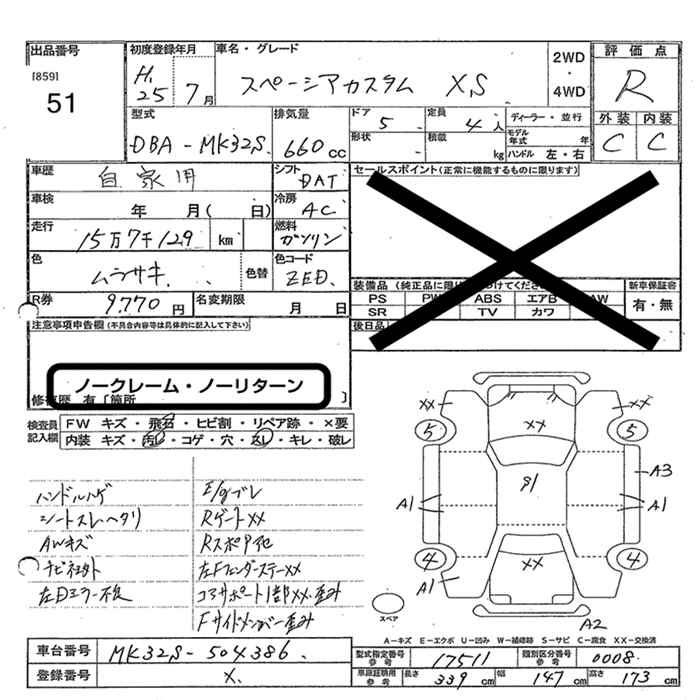 出品番号
[859]
51
初度登録年月
H. 25 7月
車名・グレード
スペーシアカスタム XS
2WD
・
4WD
評価点
R
外装 内装
C C
型式
DBA-MK32S.
排気量
660cc
ドア
5
定員
4人
形状
積載
kg
ディーラー・並行
モデル年式 年
ハンドル 左・右
車歴
自家用
シフト
DAT
車検
年 月( 日)
冷房
AC
走行
15万7千129 km
燃料
ガソリン
色
ムラサキ
色替
色コード
ZED.
R券
9,770円
名変期限
月 日
セールスポイント(正常に機能するものに限ります)
装備品
PS PW ABS エアB AW
SR TV カワ
新車保証書
有・無
後日品
注意事項申告欄(不具合内容等は具体的に記入して下さい)
ノークレーム・ノーリターン
修復歴 有 [箇所 ]
検査員記入欄
FW キズ・飛石・ヒビ割・リペア跡・×要
内装 キズ・汚レ・コゲ・穴・スレ・キレ・破レ
ハンドルハゲ
シートスレヘタリ
AWキズ
E/gブレ
RゲートXX
左FフェンダーステーXX
コアサポート1部XX.歪み
Fサイドメンバー歪み
XX XX XX
5 5
91
A1 A1 A3
XX
4 4
A1
A2
スペア
A-キズ E-エクボ U-凹み W-補修跡 S-サビ C-腐食 XX-交換済
車台番号
MK32S-504386.
登録番号
X.
型式指定番号 参考
17511
類別区分番号 参考
0008.
車原証明用 参考
長さ 339cm
幅 147cm
高さ 173cm